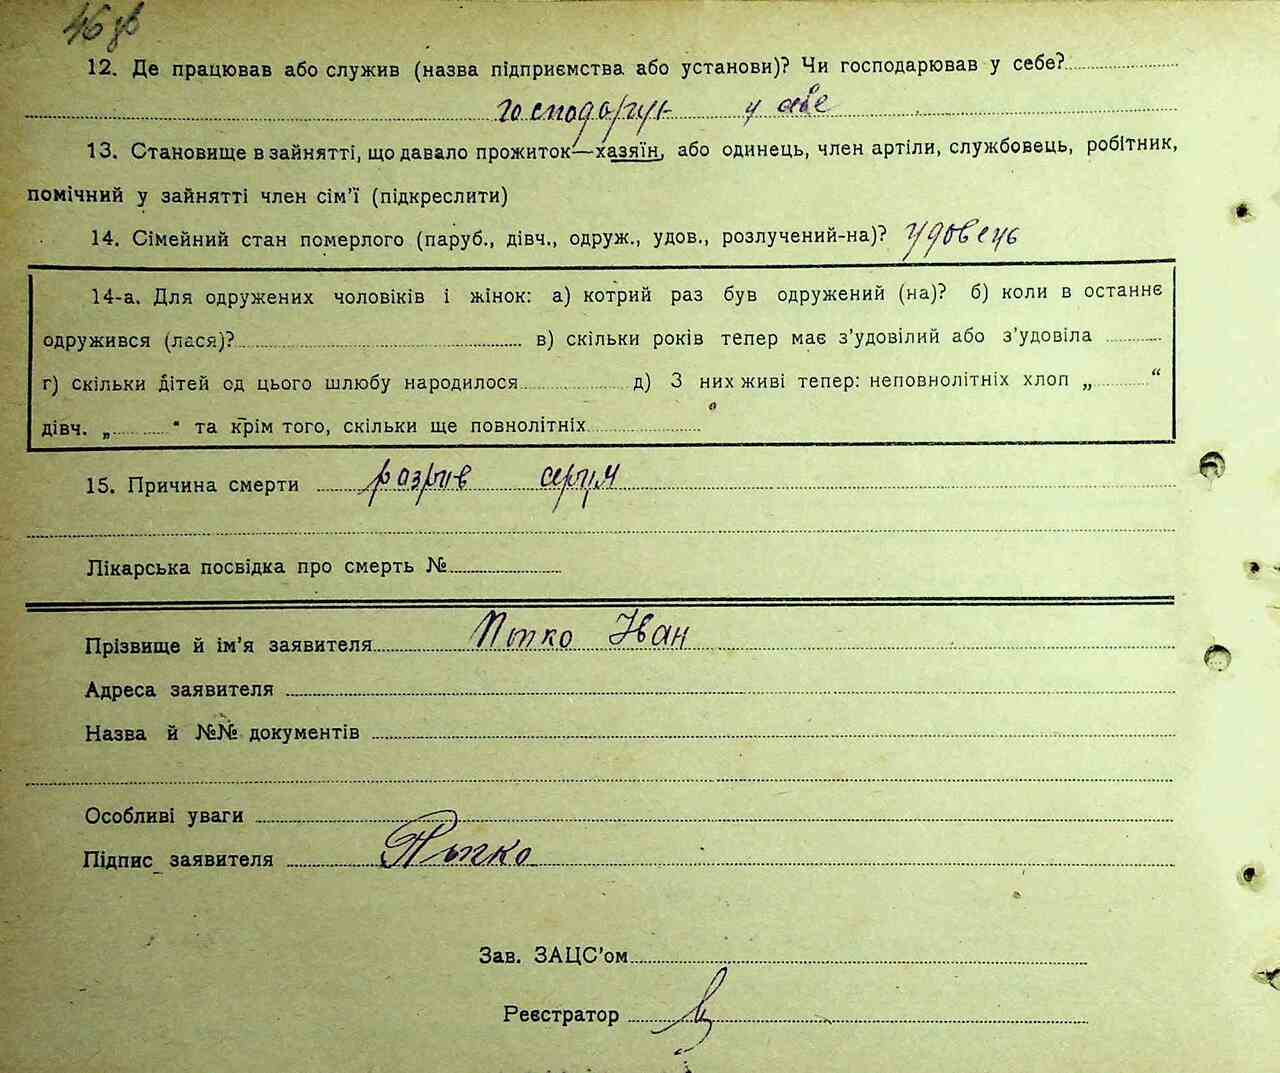 46 зв
12. Де працював або служив (назва підприємства або установи)? Чи господарював у себе?
у себе
13. Становище в зайнятті, що давало прожиток—хазяїн, або одинець, член артіли, службовець, робітник,
помічний у зайнятті член сім'ї (підкреслити)
14. Сімейний стан померлого (паруб., дівч., одруж., удов., розлучений-на)? удовець
14-а. Для одружених чоловіків і жінок: а) котрий раз був одружений (на)? б) коли в останнє
одружився (лася)? в) скільки років тепер має з'удовілий або з'удовіла
г) скільки дітей од цього шлюбу народилося д) З них живі тепер: неповнолітніх хлоп „ “
дівч. „ “ та крім того, скільки ще повнолітніх
15. Причина смерти разрив серця
Лікарська посвідка про смерть №
Прізвище й ім'я заявителя Іван
Адреса заявителя
Назва й №№ документів
Особливі уваги
Підпис заявителя
Зав. ЗАЦС'ом
Реєстратор